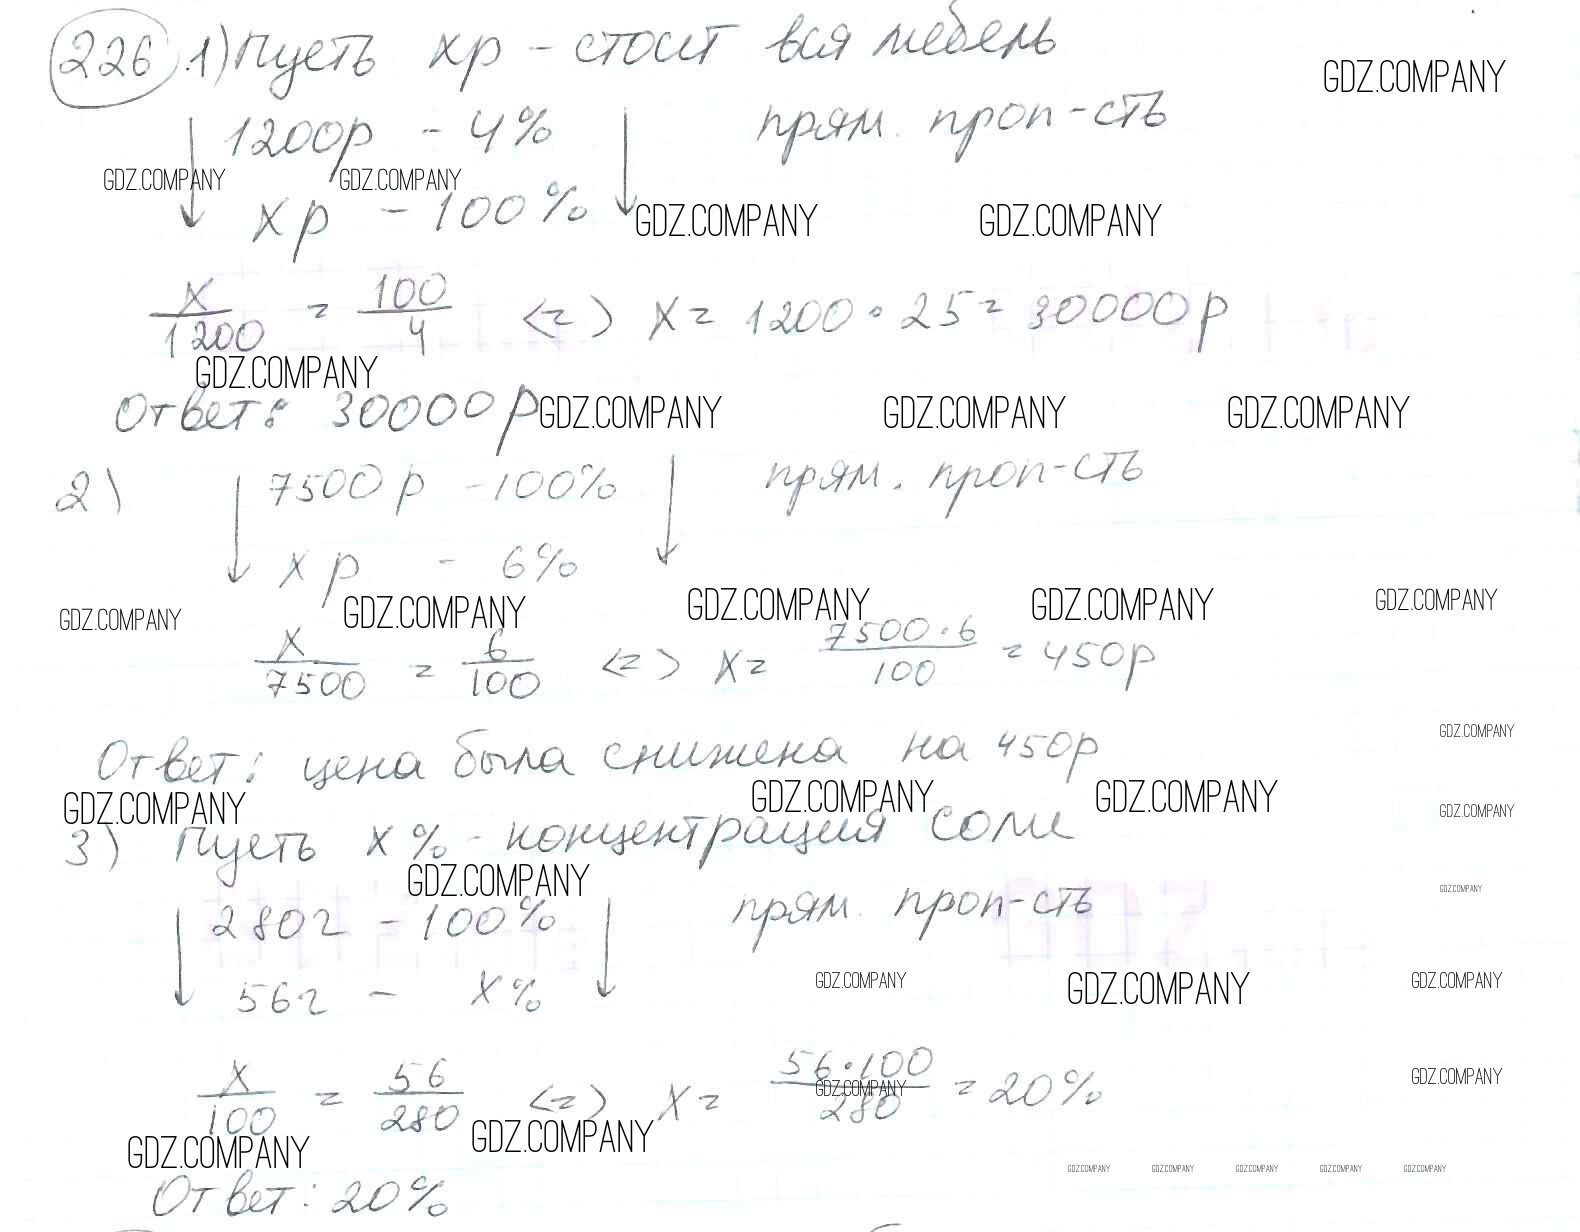 226 1) Пусть хр - стоит вся мебель
GDZ.COMPANY
1200р - 4% прям. проп-сть
GDZ.COMPANY GDZ.COMPANY
хр - 100%
GDZ.COMPANY GDZ.COMPANY
x/1200 = 100/4 <=> x = 1200 · 25 = 30000р
GDZ.COMPANY
Ответ: 30000р
GDZ.COMPANY GDZ.COMPANY GDZ.COMPANY
2) 7500р - 100% прям. проп-сть
хр - 6%
GDZ.COMPANY GDZ.COMPANY GDZ.COMPANY GDZ.COMPANY GDZ.COMPANY
x/7500 = 6/100 <=> x = 7500·6/100 = 450р
GDZ.COMPANY
Ответ: цена была снижена на 450р
GDZ.COMPANY GDZ.COMPANY GDZ.COMPANY GDZ.COMPANY
3) Пусть х% - концентрация соли
GDZ.COMPANY GDZ.COMPANY
280г - 100% прям. проп-сть
56г - х%
GDZ.COMPANY GDZ.COMPANY GDZ.COMPANY
x/100 = 56/280 <=> x = 56·100/280 = 20%
GDZ.COMPANY GDZ.COMPANY
GDZ.COMPANY GDZ.COMPANY
GDZ.COMPANY GDZ.COMPANY GDZ.COMPANY GDZ.COMPANY GDZ.COMPANY
Ответ: 20%